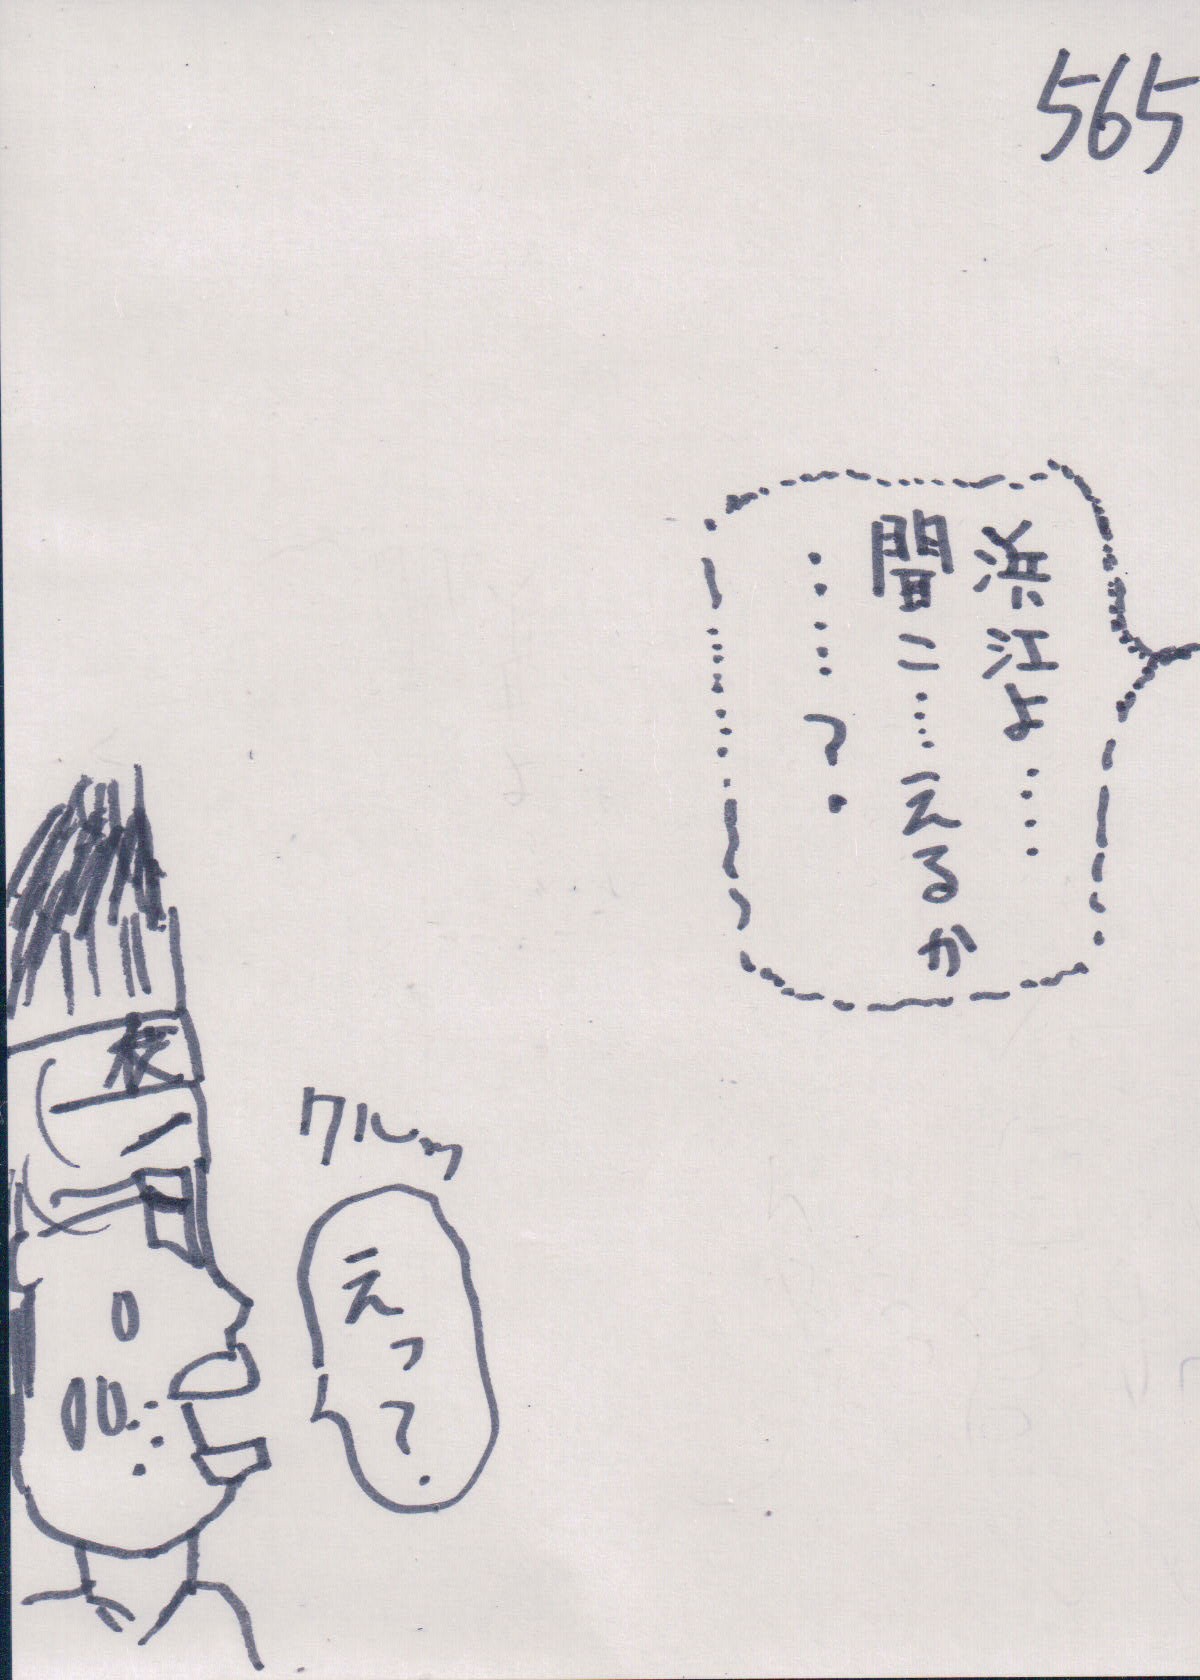 565
浜江よ……
聞こ……えるか
……っ.
クルッ
えっ?